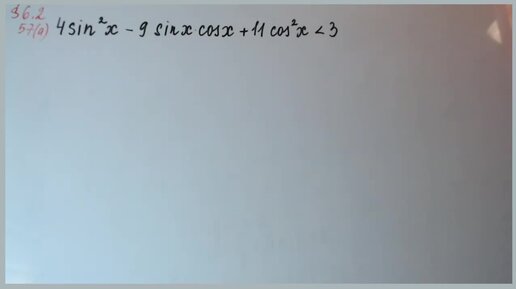 36.2
57(a) 4 sin²x - 9 sinx cosx + 11 cos²x < 3